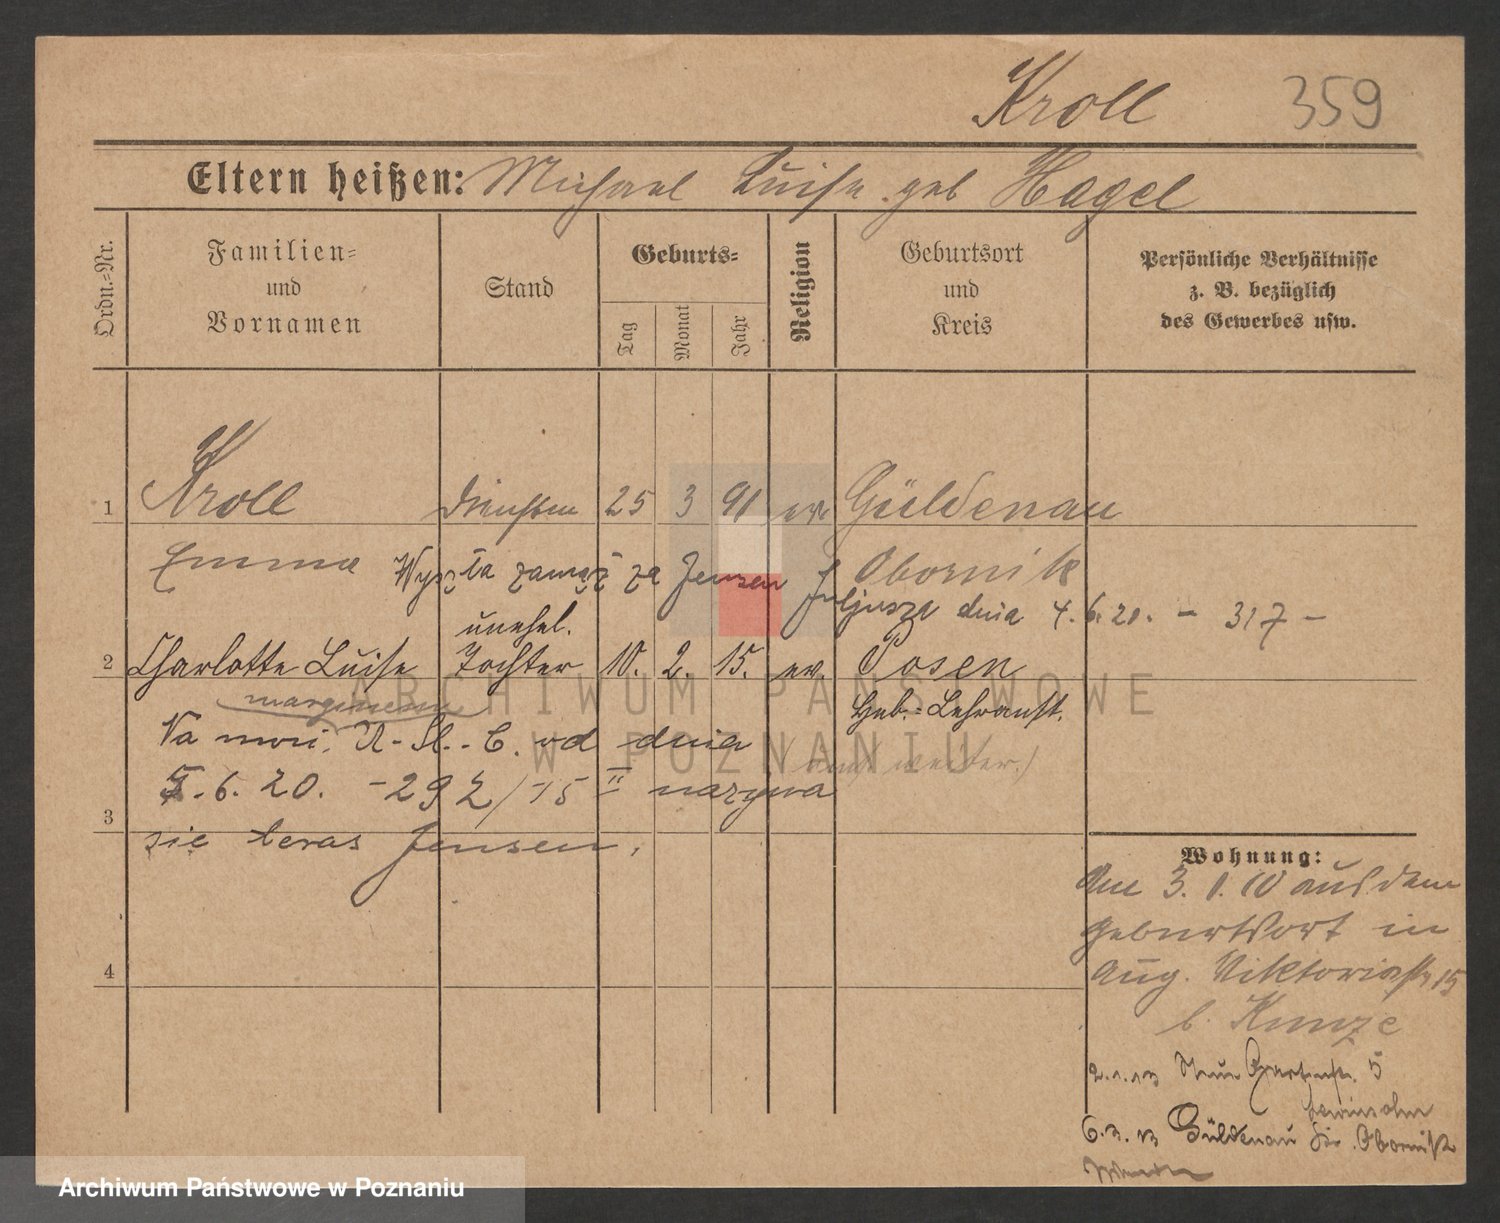 Kroll 359
Eltern heißen: Michael Luise geb Hagel
Ordn.-Nr.
Familien-
und
Vornamen
Stand
Geburts-
Tag
Monat
Jahr
Religion
Geburtsort
und
Kreis
Persönliche Verhältnisse
z. B. bezüglich
des Gewerbes usw.
1 Kroll 25 3 91 ev. Güldenau
Emma Wyszła zamąż za Jenzen Obornik
Juljusza dnia 4.6.20. - 317 -
unehel.
2 Charlotte Luise Tochter 10. 2. 15. ev. Posen
Heb.-Lehranst.
Na U-St.-C. od dnia
5.6.20. - 292/15 II nazywa
3
sie teras Jensen.
4
Wohnung:
Am 3. 1. 10 aus dem
Geburtsort in
Aug. Viktoriastr 15
b. Kunze
2.1.13 Neue Gartenstr. 5
Lewinsohn
6.3.13 Güldenau Kr. Obornik
ARCHIWUM PAŃSTWOWE
W POZNANIU
Archiwum Państwowe w Poznaniu